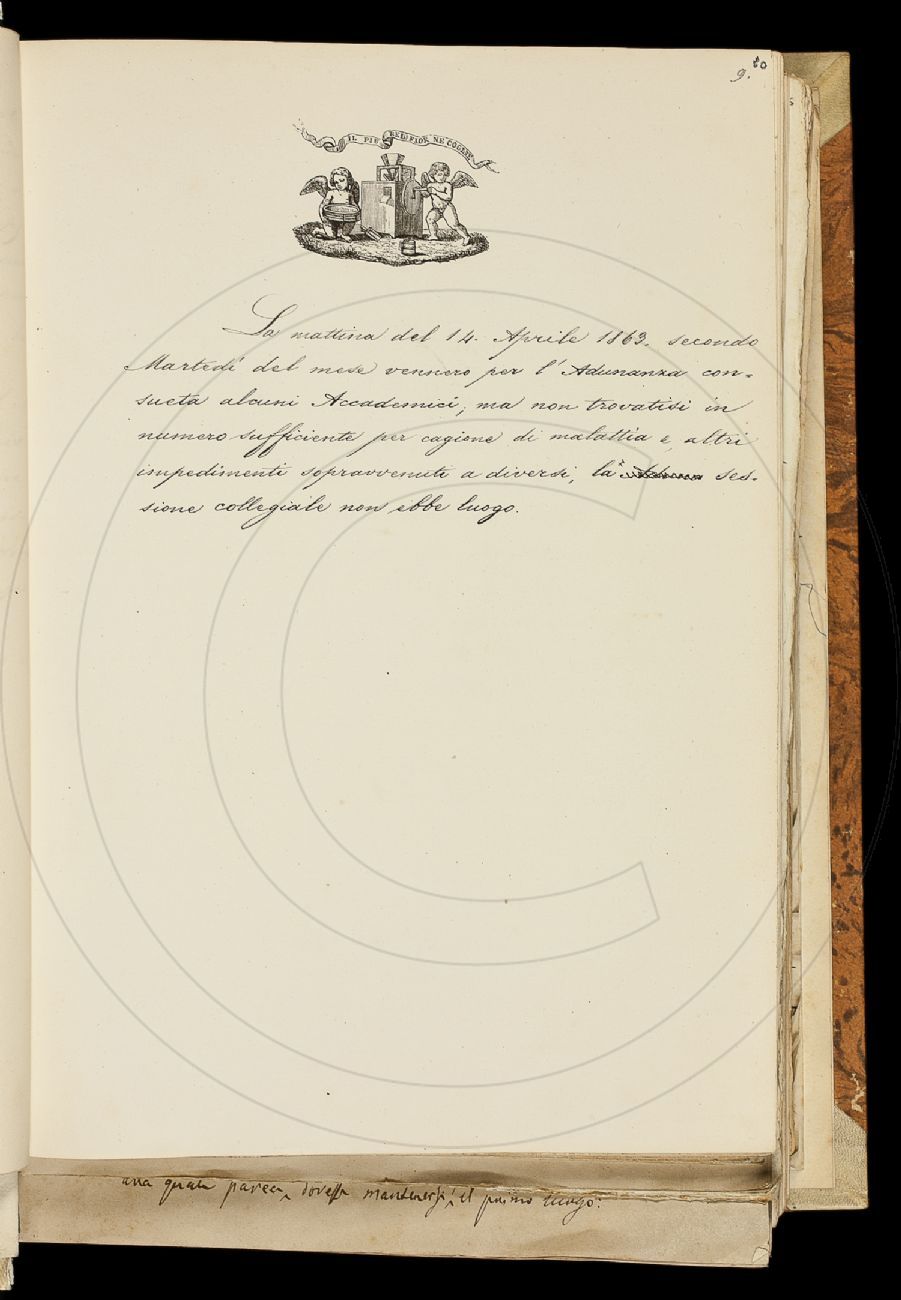 9. 80
IL PIÙ BEL FIOR NE COGLIE
La mattina del 14. Aprile 1863. secondo
Martedì del mese vennero per l'Adunanza con-
sueta alcuni Accademici; ma non trovatisi in
numero sufficiente per cagione di malattia e altri
impedimenti sopravvenuti a diversi, la ses-
sione collegiale non ebbe luogo.
quale parea, dovesse mantenersi il primo luogo.